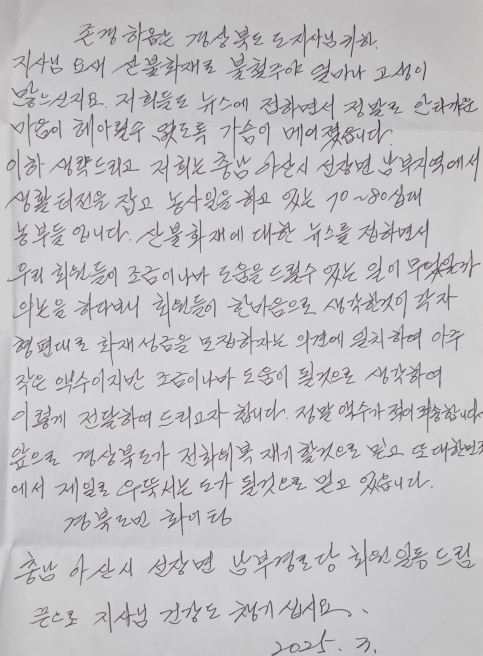 존경하옵는 경상북도 도지사님 귀하.
지사님 요새 산불화재로 불철주야 얼마나 고생이
많으신지요. 저희들도 뉴스에 접하면서 정말로 안타까운
마음이 헤아릴수 없도록 가슴이 메어졌습니다.
이하 생략드리고 저희는 충남 아산시 선장면 남부지역에서
생활터전을 잡고 농사일을 하고 있는 70~80십대
농부들 입니다. 산불화재에 대한 뉴스를 접하면서
우리 회원들이 조금이나마 도움을 드릴수 있는 일이 무엇일까
의논을 하다보니 회원들이 한마음으로 생각한것이 각자
형편대로 화재성금을 모집하자는 의견에 일치하여 아주
작은 액수이지만 조금이나마 도움이 될것으로 생각하여
이렇게 전달하여 드리고자 합니다. 정말 액수가 적어 죄송합니다.
앞으로 경상북도가 전화위복 재기할것으로 믿고 또 대한민국
에서 제일로 우뚝서는 도가 될것으로 믿고 있습니다.
경북도민 화이팅
충남 아산시 선장면 남부경로당 회원일동 드림
끝으로 지사님 건강도 챙기십시요.
2025. 3.